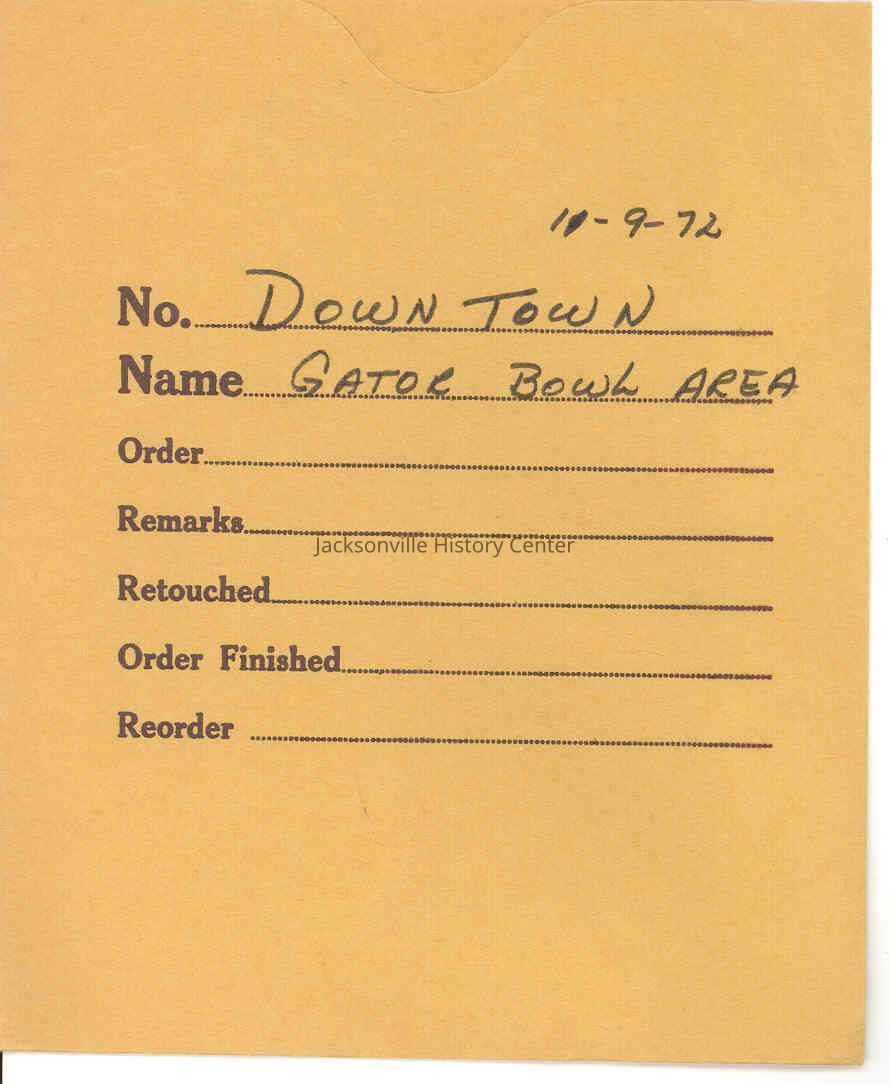 11-9-72
No. DOWN TOWN
Name GATOR BOWL AREA
Order
Remarks
Jacksonville History Center
Retouched
Order Finished
Reorder